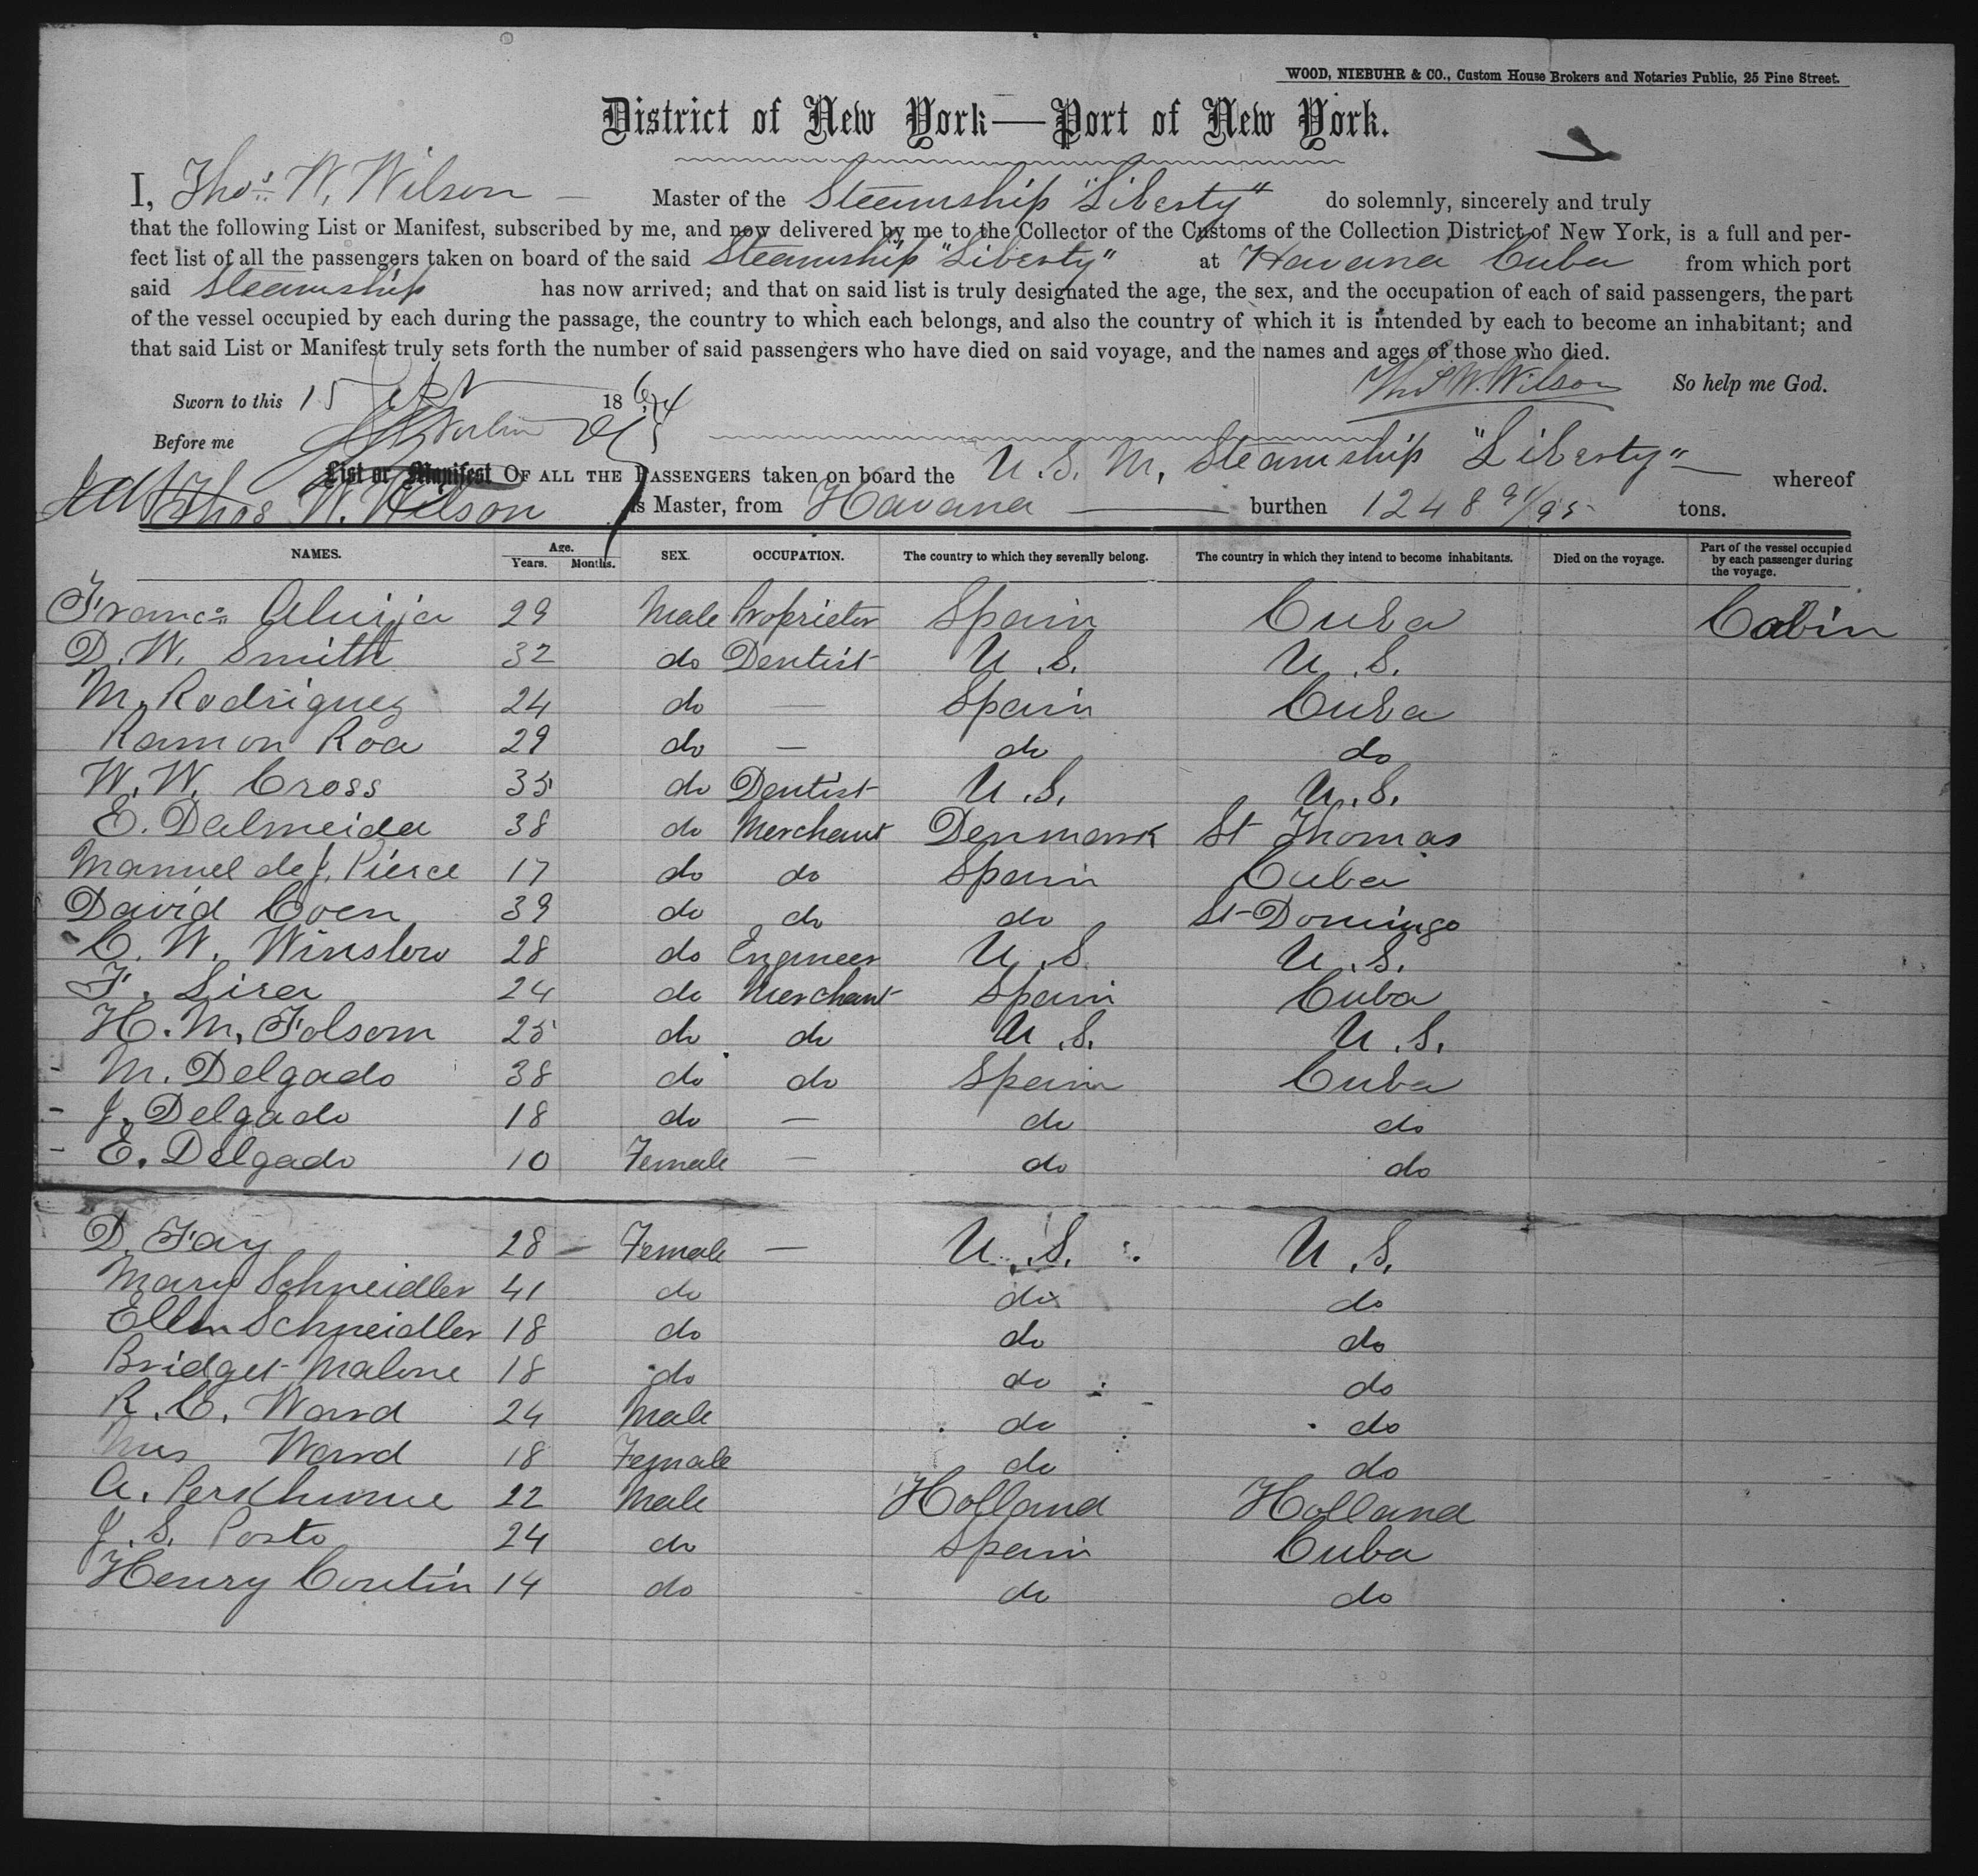 WOOD, NIEBUHR & CO., Custom House Brokers and Notaries Public, 25 Pine Street.
District of New York—Port of New York.
I, Thos W. Wilson — Master of the Steamship "Liberty" do solemnly, sincerely and truly
that the following List or Manifest, subscribed by me, and now delivered by me to the Collector of the Customs of the Collection District of New York, is a full and per-
fect list of all the passengers taken on board of the said Steamship "Liberty" at Havana Cuba from which port
said Steamship has now arrived; and that on said list is truly designated the age, the sex, and the occupation of each of said passengers, the part
of the vessel occupied by each during the passage, the country to which each belongs, and also the country of which it is intended by each to become an inhabitant; and
that said List or Manifest truly sets forth the number of said passengers who have died on said voyage, and the names and ages of those who died.
Thos W. Wilson So help me God.
Sworn to this 15 Sept 186
Before me
List or Manifest OF ALL THE PASSENGERS taken on board the U. S. M. Steamship "Liberty" — whereof
Thos W. Wilson is Master, from Havana — burthen 1248 91/95 tons.
NAMES. Age. Years. Months. SEX. OCCUPATION. The country to which they severally belong. The country in which they intend to become inhabitants. Died on the voyage. Part of the vessel occupied by each passenger during the voyage.
Franco 29 Male Proprietor Spain Cuba Cabin
D. W. Smith 32 do Dentist U. S. U. S.
M. Rodriguez 24 do — Spain Cuba
Ramon Roa 29 do — do do
W. W. Cross 35 do Dentist U. S. U. S.
E. Dalmeida 38 do Merchant Denmark St Thomas
Manuel de J. Pierce 17 do do Spain Cuba
David Coen 39 do do do St Domingo
C. W. Winslow 28 do Engineer U. S. U. S.
F. Lira 24 do Merchant Spain Cuba
H. M. Folsom 25 do do U. S. U. S.
- M. Delgado 38 do do Spain Cuba
- J. Delgado 18 do — do do
- E. Delgado 10 Female — do do
D. Fay 28 — Female — U. S. U. S.
Mary Schneidler 41 do do do
Ellen Schneidler 18 do do do
Bridget Malone 18 do do do
R. C. Ward 24 Male do do
Mrs Ward 18 Female do do
A. 22 Male Holland Holland
J. S. Porto 24 do Spain Cuba
Henry Coutin 14 do do do